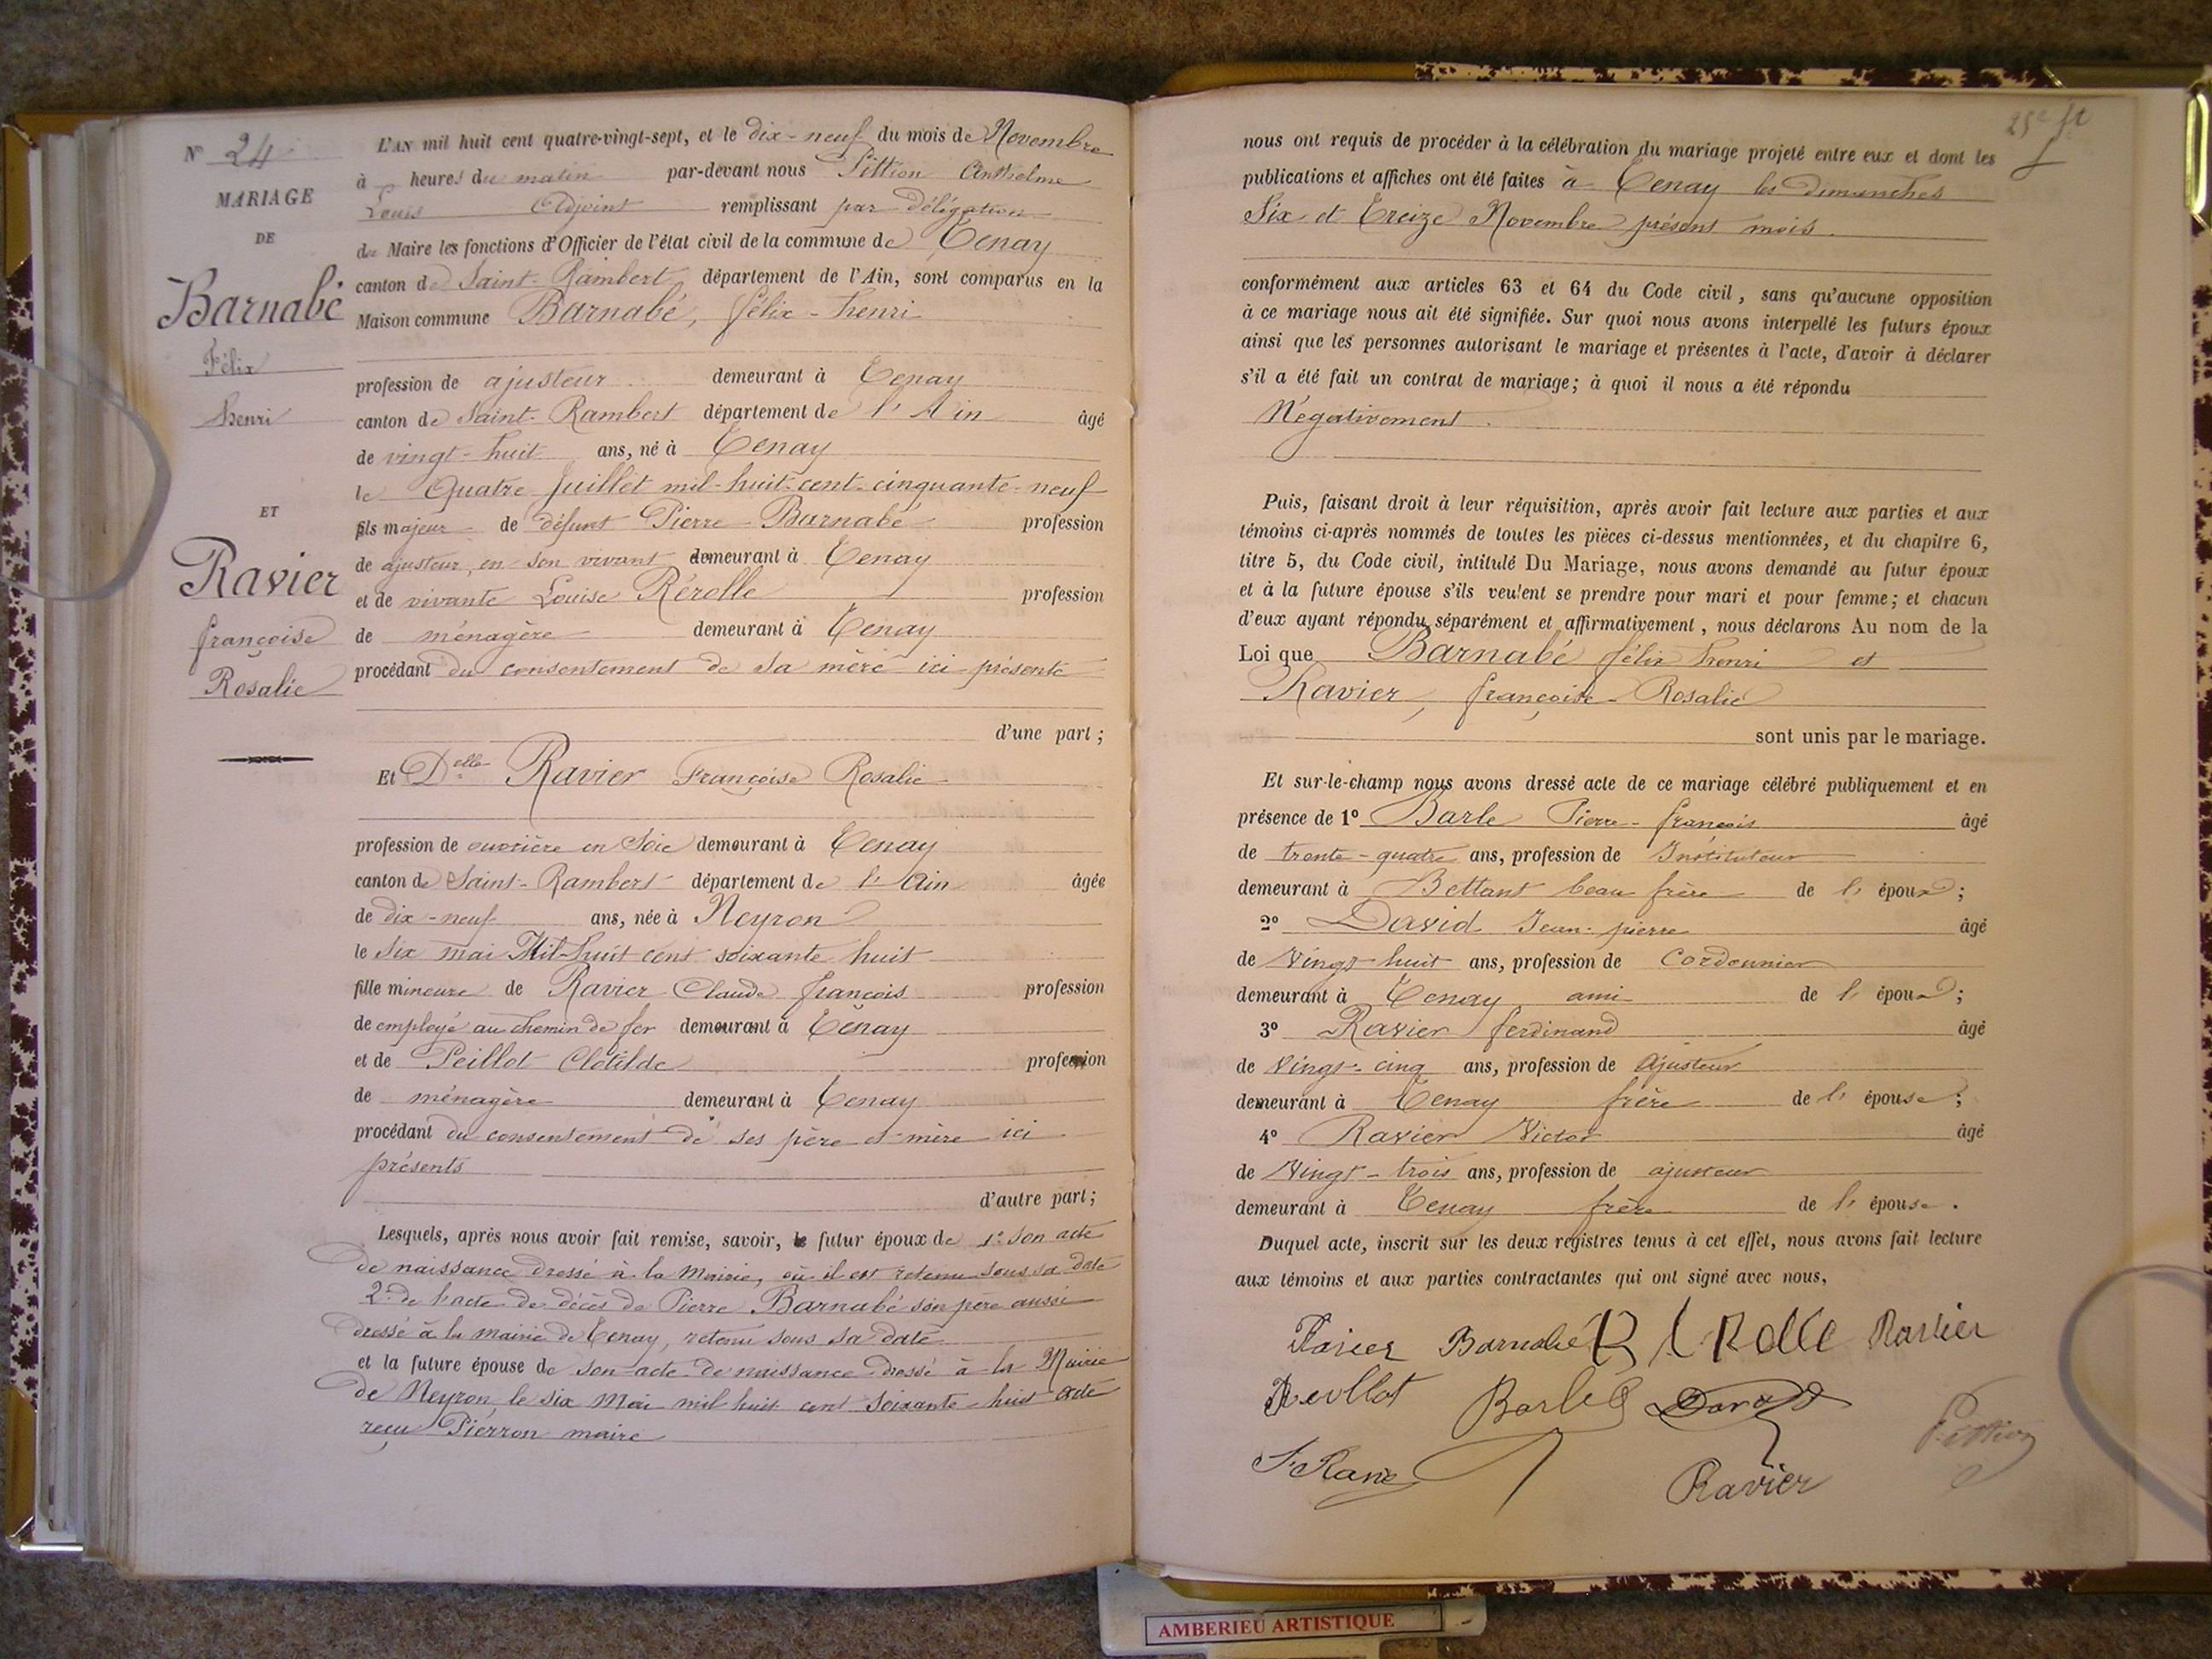 N° 24
MARIAGE
DE
Barnabé
Félix
henri
ET
Ravier
françoise
Rosalie
L'AN mil huit cent quatre-vingt-sept, et le dix-neuf du mois de Novembre
à heures du matin par-devant nous Pittion Anthelme
Louis Adjoint remplissant par délégation
du Maire les fonctions d'Officier de l'état civil de la commune de Tenay
canton de Saint-Rambert département de l'Ain, sont comparus en la
Maison commune Barnabé, félix-henri
profession de ajusteur demeurant à Tenay
canton de Saint-Rambert département de l'Ain âgé
de vingt-huit ans, né à Tenay
le Quatre Juillet mil-huit-cent-cinquante-neuf
fils majeur de défunt Pierre Barnabé profession
de ajusteur, en son vivant demeurant à Tenay
et de vivante Louise Rérolle profession
de ménagère demeurant à Tenay
procédant du consentement de sa mère ici présente
d'une part ;
Et Delle Ravier Françoise Rosalie
profession de ouvrière en Soie demeurant à Tenay
canton de Saint-Rambert département de l'Ain âgée
de dix-neuf ans, née à Neyron
le six mai Mil-huit cent soixante huit
fille mineure de Ravier Claude françois profession
de employé au chemin de fer demeurant à Tenay
et de Peillot Clotilde profession
de ménagère demeurant à Tenay
procédant du consentement de ses père et mère ici
présents
d'autre part ;
Lesquels, après nous avoir fait remise, savoir, le futur époux de 1° son acte
de naissance dressé à la Mairie, où il est retenu sous sa date
2° de l'acte de décès de Pierre Barnabé son père aussi
dressé à la mairie de Tenay, retenu sous sa date
et la future épouse de son acte de naissance dressé à la Mairie
de Neyron, le six Mai mil huit cent soixante-huit acte
reçu Pierron maire
25e ft
nous ont requis de procéder à la célébration du mariage projeté entre eux et dont les
publications et affiches ont été faites à Tenay les dimanches
Six et Treize Novembre présent mois.
conformément aux articles 63 et 64 du Code civil, sans qu'aucune opposition
à ce mariage nous ait été signifiée. Sur quoi nous avons interpellé les futurs époux
ainsi que les personnes autorisant le mariage et présentes à l'acte, d'avoir à déclarer
s'il a été fait un contrat de mariage; à quoi il nous a été répondu
Négativement.
Puis, faisant droit à leur réquisition, après avoir fait lecture aux parties et aux
témoins ci-après nommés de toutes les pièces ci-dessus mentionnées, et du chapitre 6,
titre 5, du Code civil, intitulé Du Mariage, nous avons demandé au futur époux
et à la future épouse s'ils veulent se prendre pour mari et pour femme; et chacun
d'eux ayant répondu séparément et affirmativement, nous déclarons Au nom de la
Loi que Barnabé félix henri et
Ravier, françoise-Rosalie
sont unis par le mariage.
Et sur-le-champ nous avons dressé acte de ce mariage célébré publiquement et en
présence de 1° Barle Pierre-françois âgé
de trente-quatre ans, profession de Instituteur
demeurant à Bettant beau frère de l'époux ;
2° David Jean-pierre âgé
de Vingt-huit ans, profession de Cordonnier
demeurant à Tenay ami de l'époux ;
3° Ravier ferdinand âgé
de Vingt-cinq ans, profession de Ajusteur
demeurant à Tenay frère de l'épouse ;
4° Ravier Victor âgé
de Vingt-trois ans, profession de ajusteur
demeurant à Tenay frère de l'épouse.
Duquel acte, inscrit sur les deux registres tenus à cet effet, nous avons fait lecture
aux témoins et aux parties contractantes qui ont signé avec nous,
Barnabé Ravier
Barlé David Pittion
Ravier
AMBERIEU ARTISTIQUE